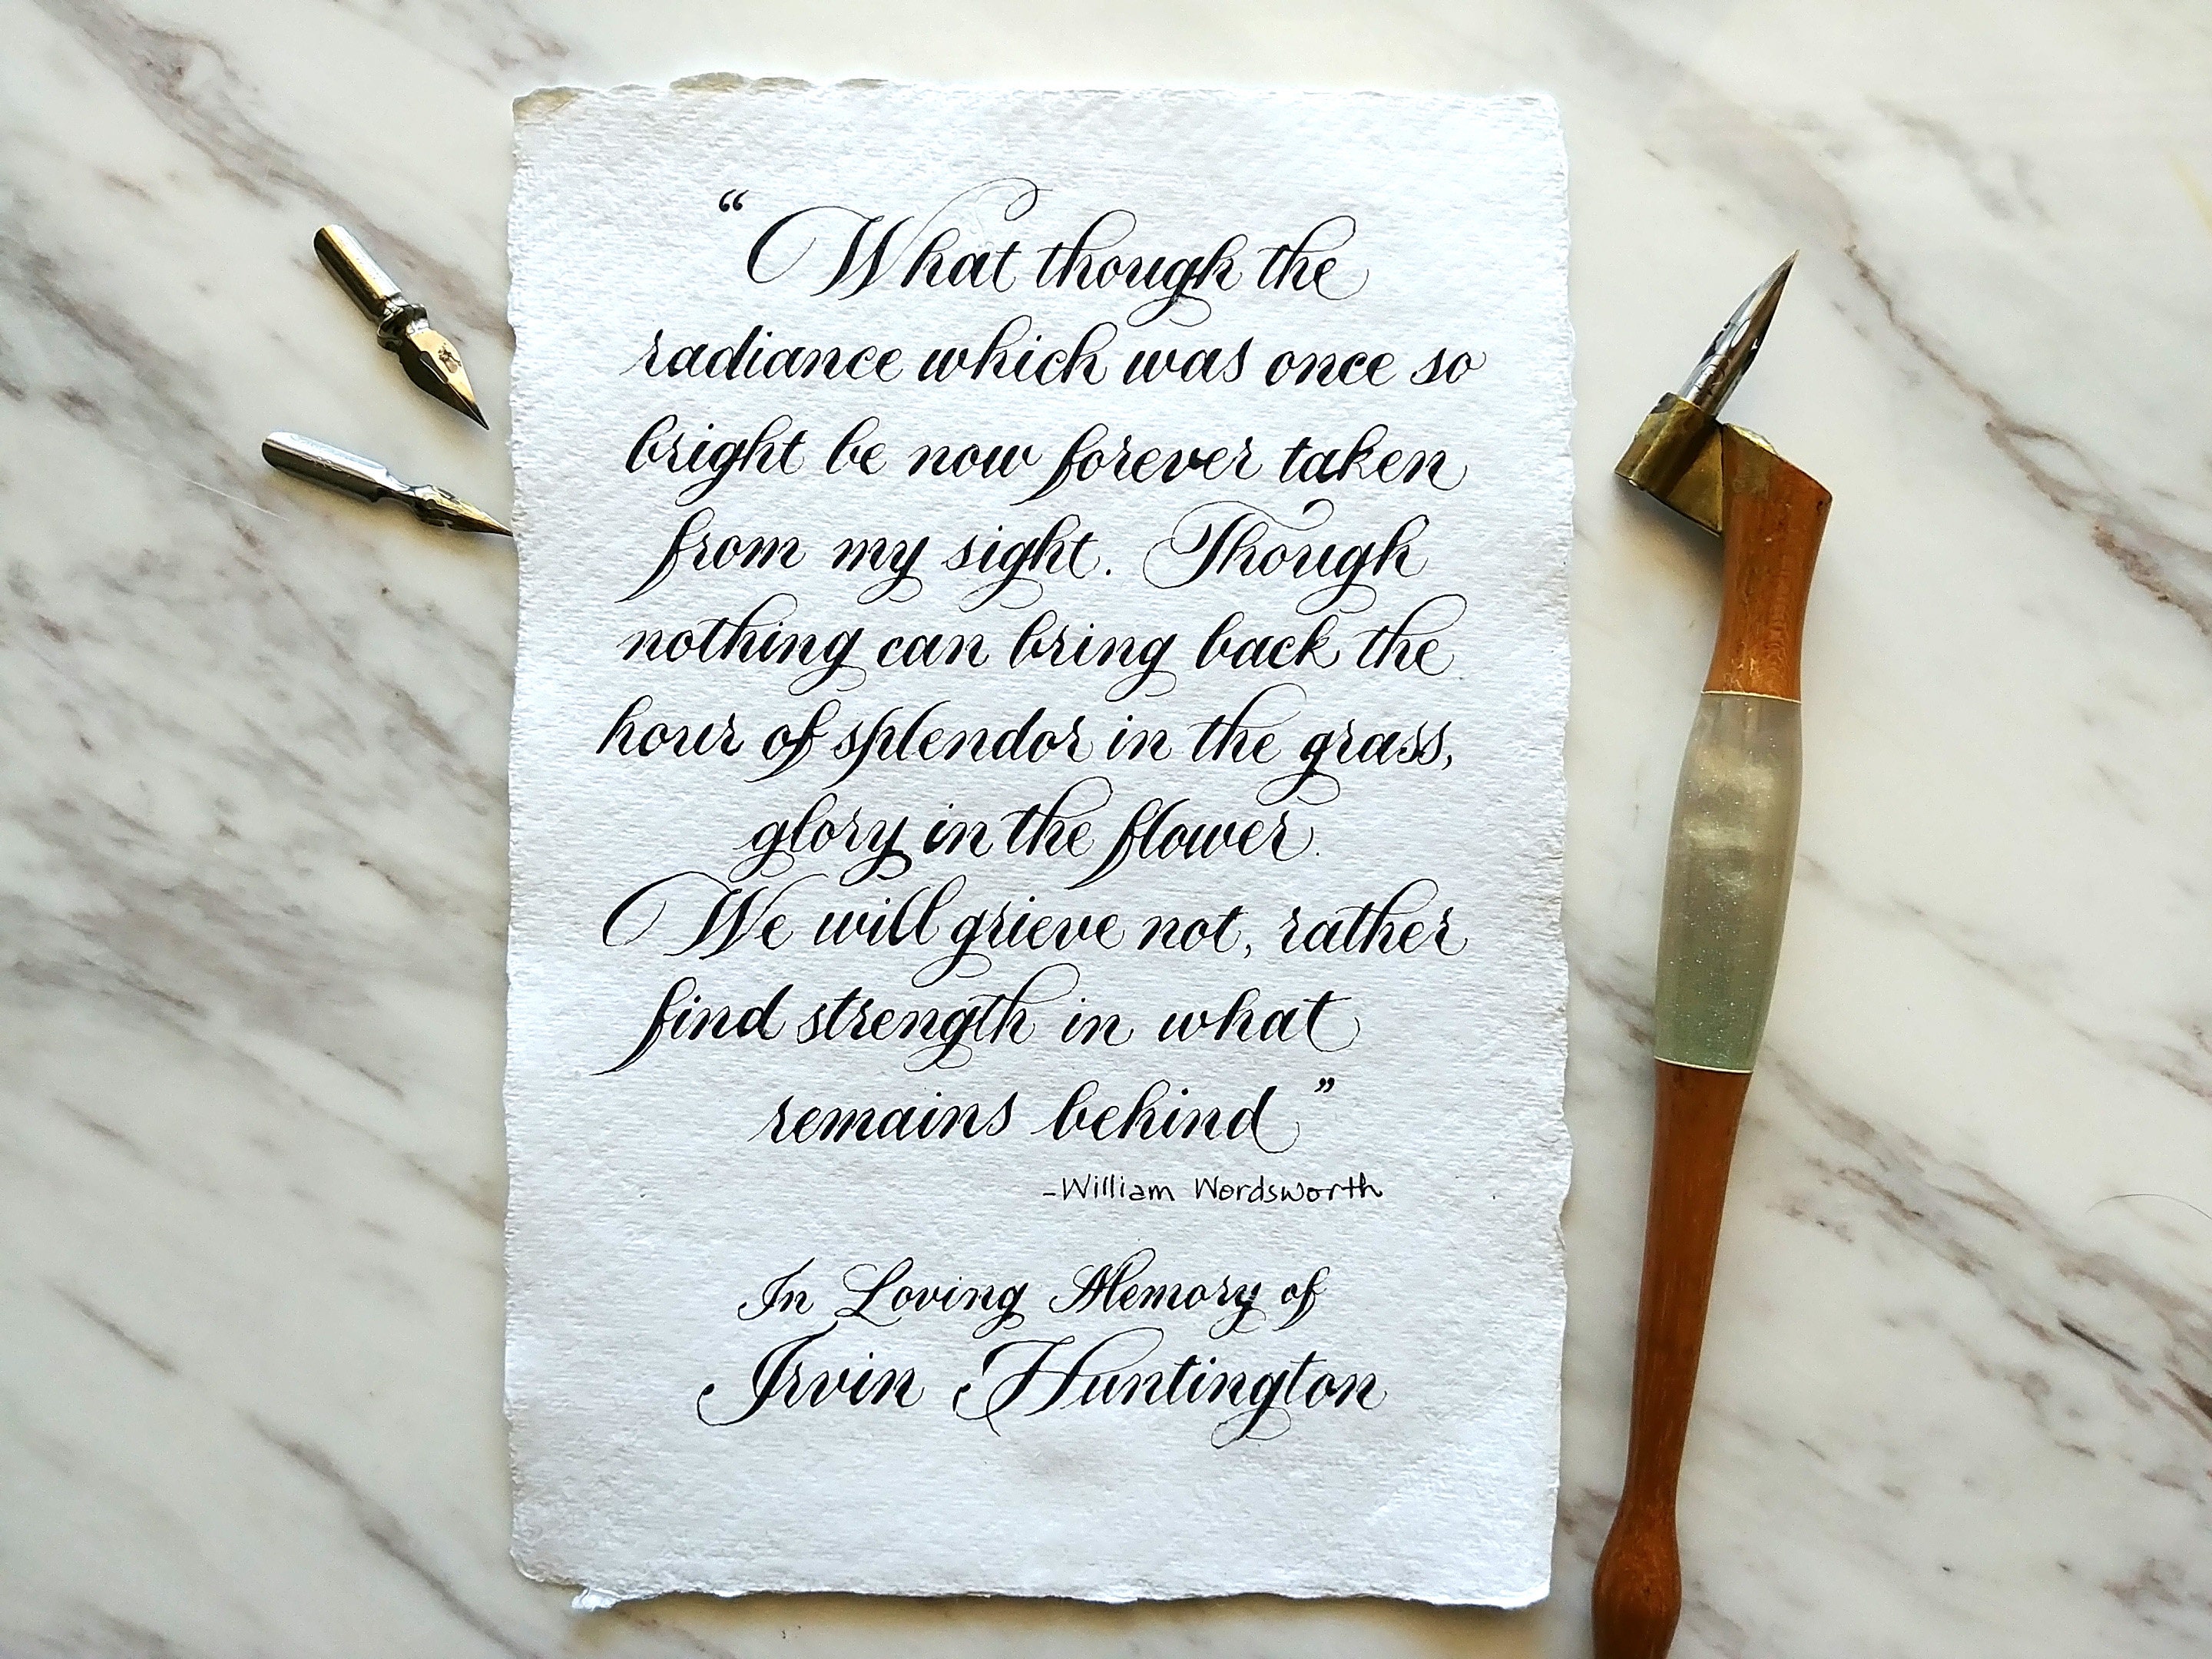 “What though the
radiance which was once so
bright be now forever taken
from my sight. Though
nothing can bring back the
hour of splendor in the grass,
glory in the flower.
We will grieve not, rather
find strength in what
remains behind”
-William Wordsworth
In Loving Memory of
Irvin Huntington